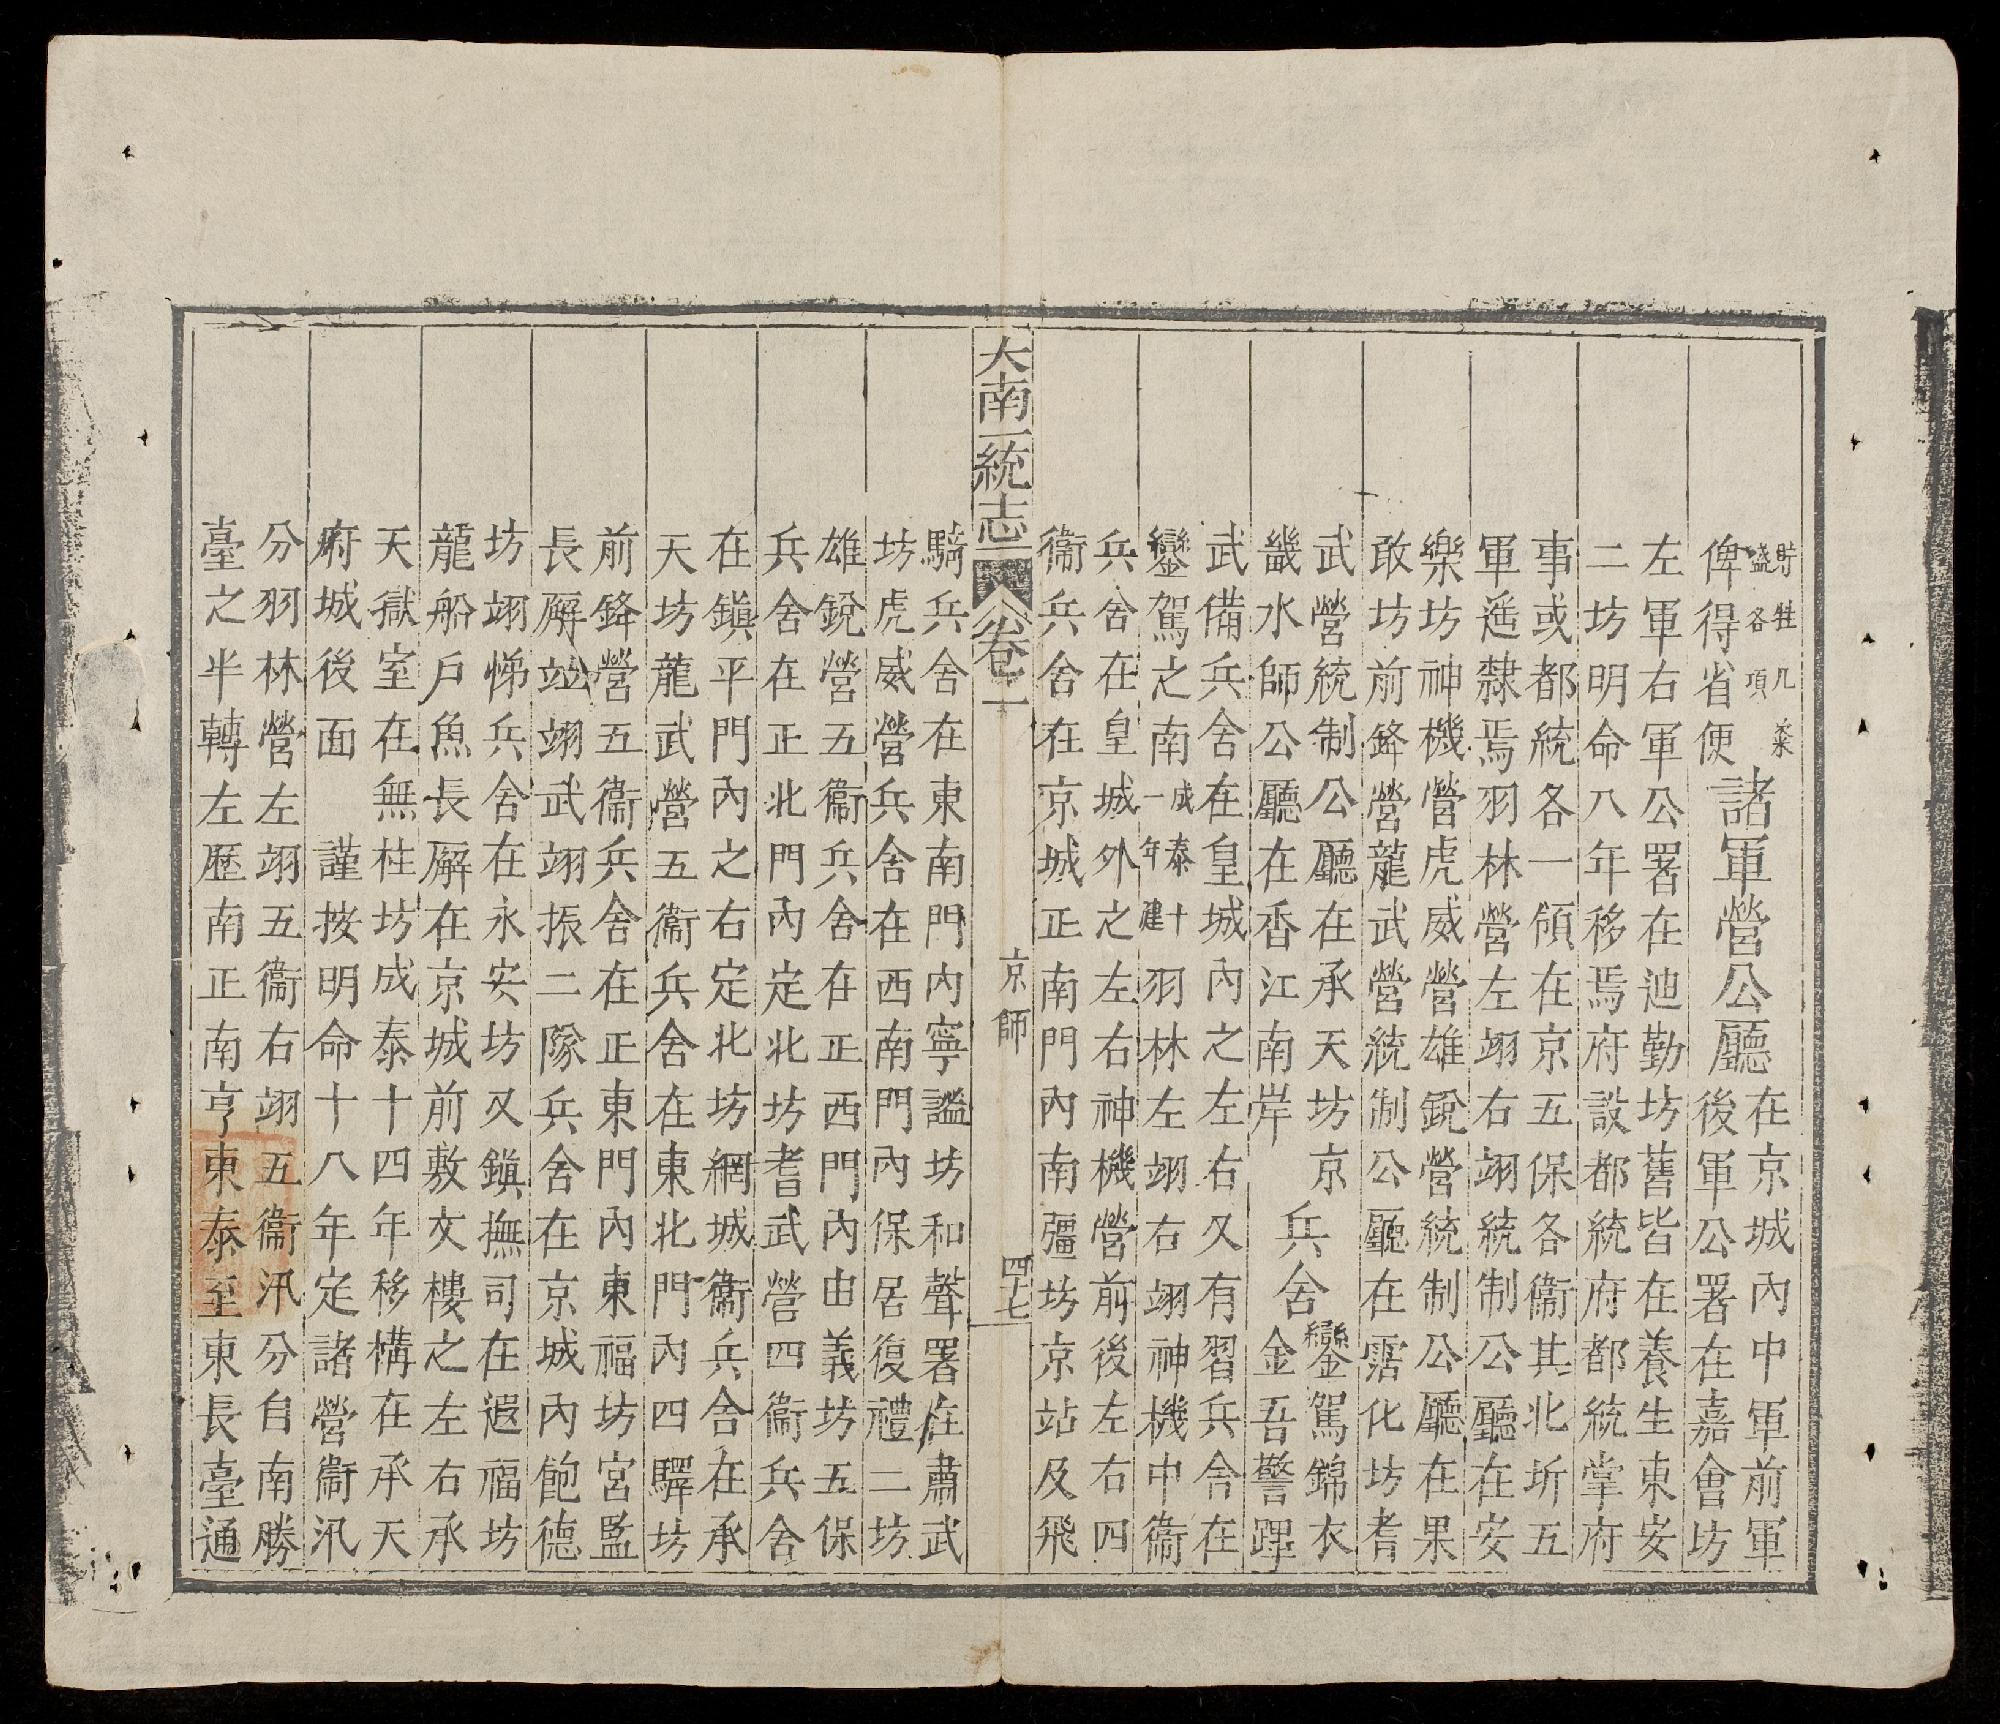 時牲几案
盛各項
俾得省便
諸軍營公廳
在京城內中軍前軍
後軍公署在嘉會坊
左軍右軍公署在迪勤坊舊皆在養生東安
二坊明命八年移焉府設都統府都統掌府
事或都統各一領在京五保各衞其北圻五
軍遥隸焉羽林營左翊右翊統制公廳在安
樂坊神機營虎威營雄銳營統制公廳在果
敢坊前鋒營龍武營統制公廳在霑化坊耆
武營統制公廳在承天坊京
畿水師公廳在香江南岸
兵舍
鑾駕錦衣
金吾警蹕
武備兵舍在皇城內之左右又有習兵舍在
鑾駕之南成泰十一年建羽林左翊右翊神機中衞
兵舍在皇城外之左右神機營前後左右四
衞兵舍在京城正南門內南彊坊京站及飛
大南一統志 卷之一 京師 四十七
騎兵舍在東南門內寧謐坊和聲署在肅武
坊虎威營兵舍在西南門內保居復禮二坊
雄銳營五衞兵舍在正西門內由義坊五保
兵舍在正北門內定北坊耆武營四衞兵舍
在鎮平門內之右定北坊網城衞兵舍在承
天坊龍武營五衞兵舍在東北門內四驛坊
前鋒營五衞兵舍在正東門內東福坊宮監
長廨站翊武翊振二隊兵舍在京城內飽德
坊翊悌兵舍在永安坊又鎮撫司在遐福坊
龍船戶魚長廨在京城前敷文樓之左右承
天獄室在無柱坊成泰十四年移構在承天
府城後面 謹按明命十八年定諸營衞汛
分羽林營左翊五衞右翊五衞汛分自南勝
臺之半轉左歷南正南亨東泰至東長臺通